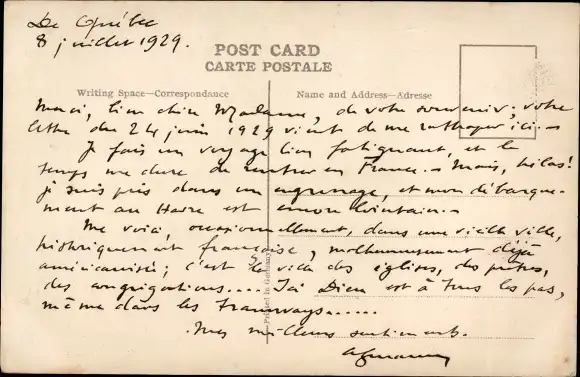 De Québec
8 juillet 1929.
POST CARD
CARTE POSTALE
Writing Space—Correspondance
Name and Address—Adresse
Merci, bien chère Madame, de votre souvenir; votre
lettre du 24 juin 1929 vient de me rattraper ici. –
Je fais un voyage bien fatiguant, et le
temps me dure de rentrer en France. – Mais, hélas!
je suis pris dans un engrenage, et mon débarque-
ment au Havre est encore lointain. –
Me voici, occasionnellement, dans une vieille ville,
historiquement française, malheureusement déjà
américanisée; c'est la ville des églises, des prêtres,
des congrégations.... Ici Dieu est à tous les pas,
même dans les tramways......
Mes meilleurs sentiments.
Printed in Germany